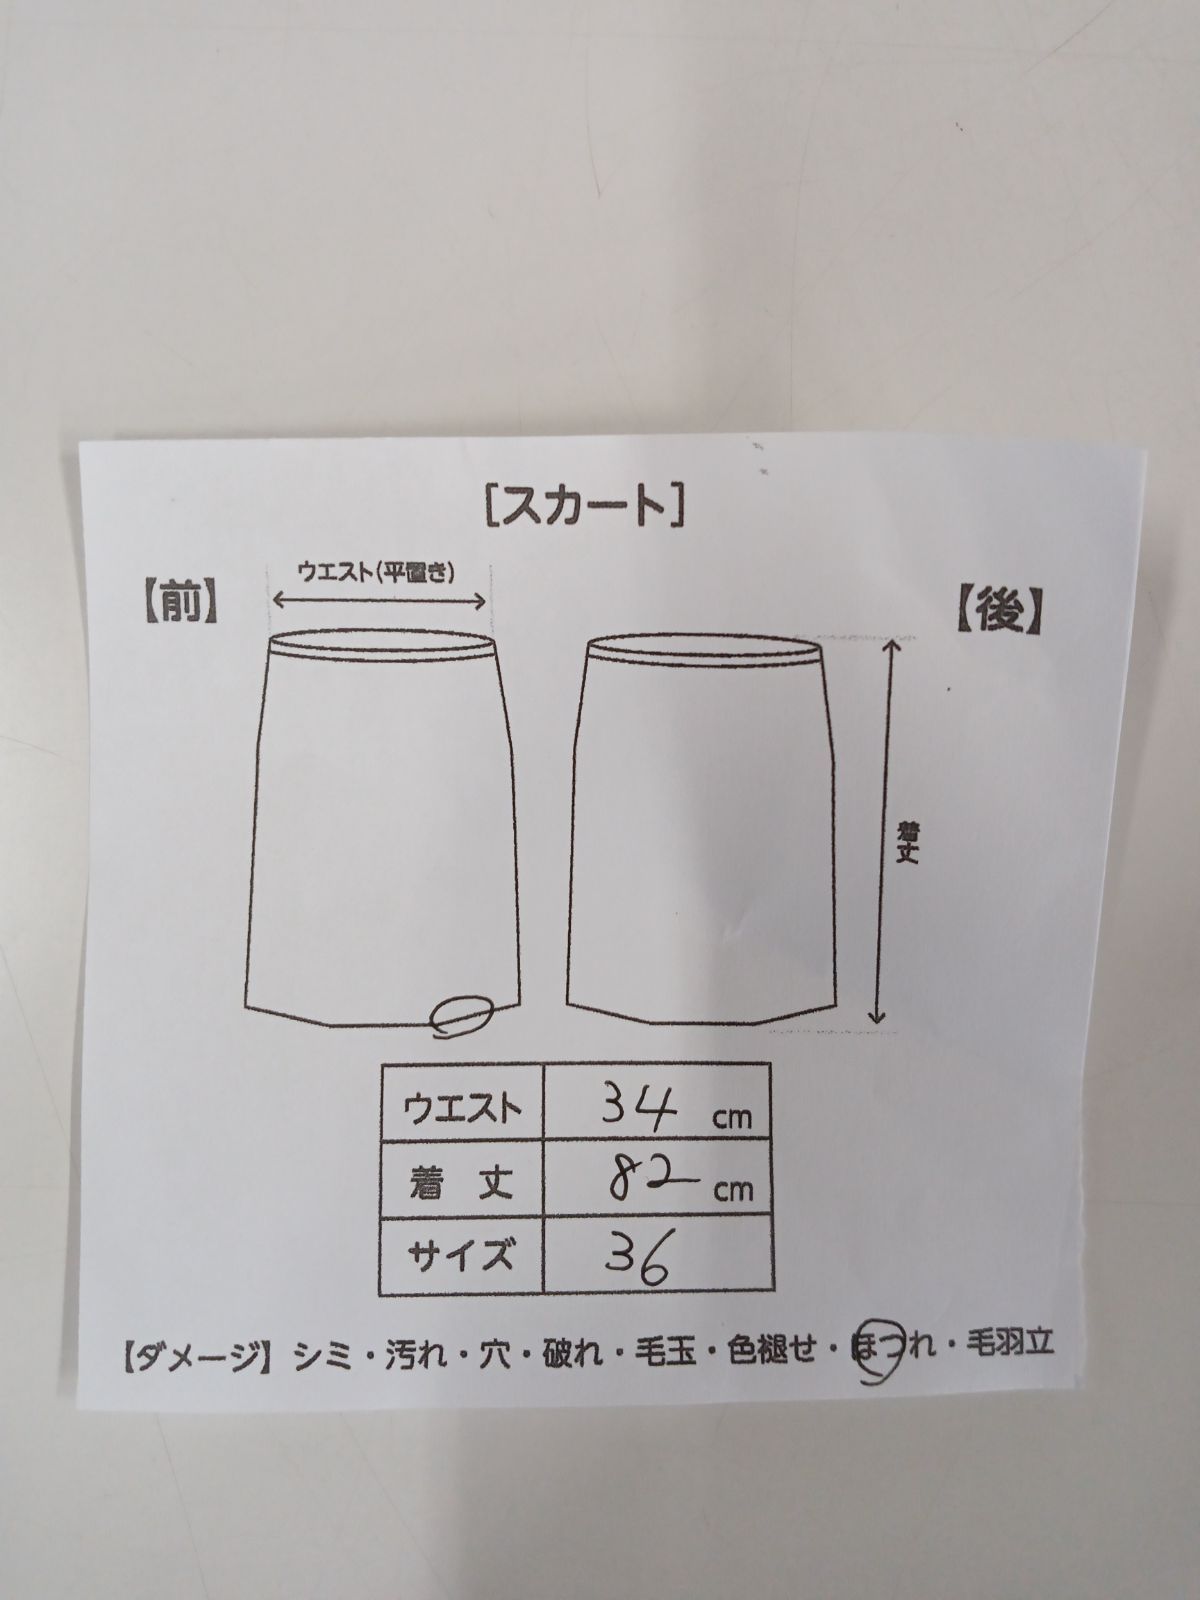 [スカート]
【前】
ウエスト(平置き)
【後】
着丈
ウエスト 34 cm
着 丈 82 cm
サイズ 36
【ダメージ】シミ・汚れ・穴・破れ・毛玉・色褪せ・ほつれ・毛羽立